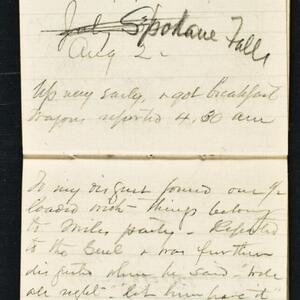 July Spokane Falls
Aug 2.
Up very early, & got breakfast
wagons reported 4.30 am
To my disgust found one
loaded with things belong
to Miles party. Reported
to the Genl & was further
disgusted when he said "Well
all right" "let him have it"